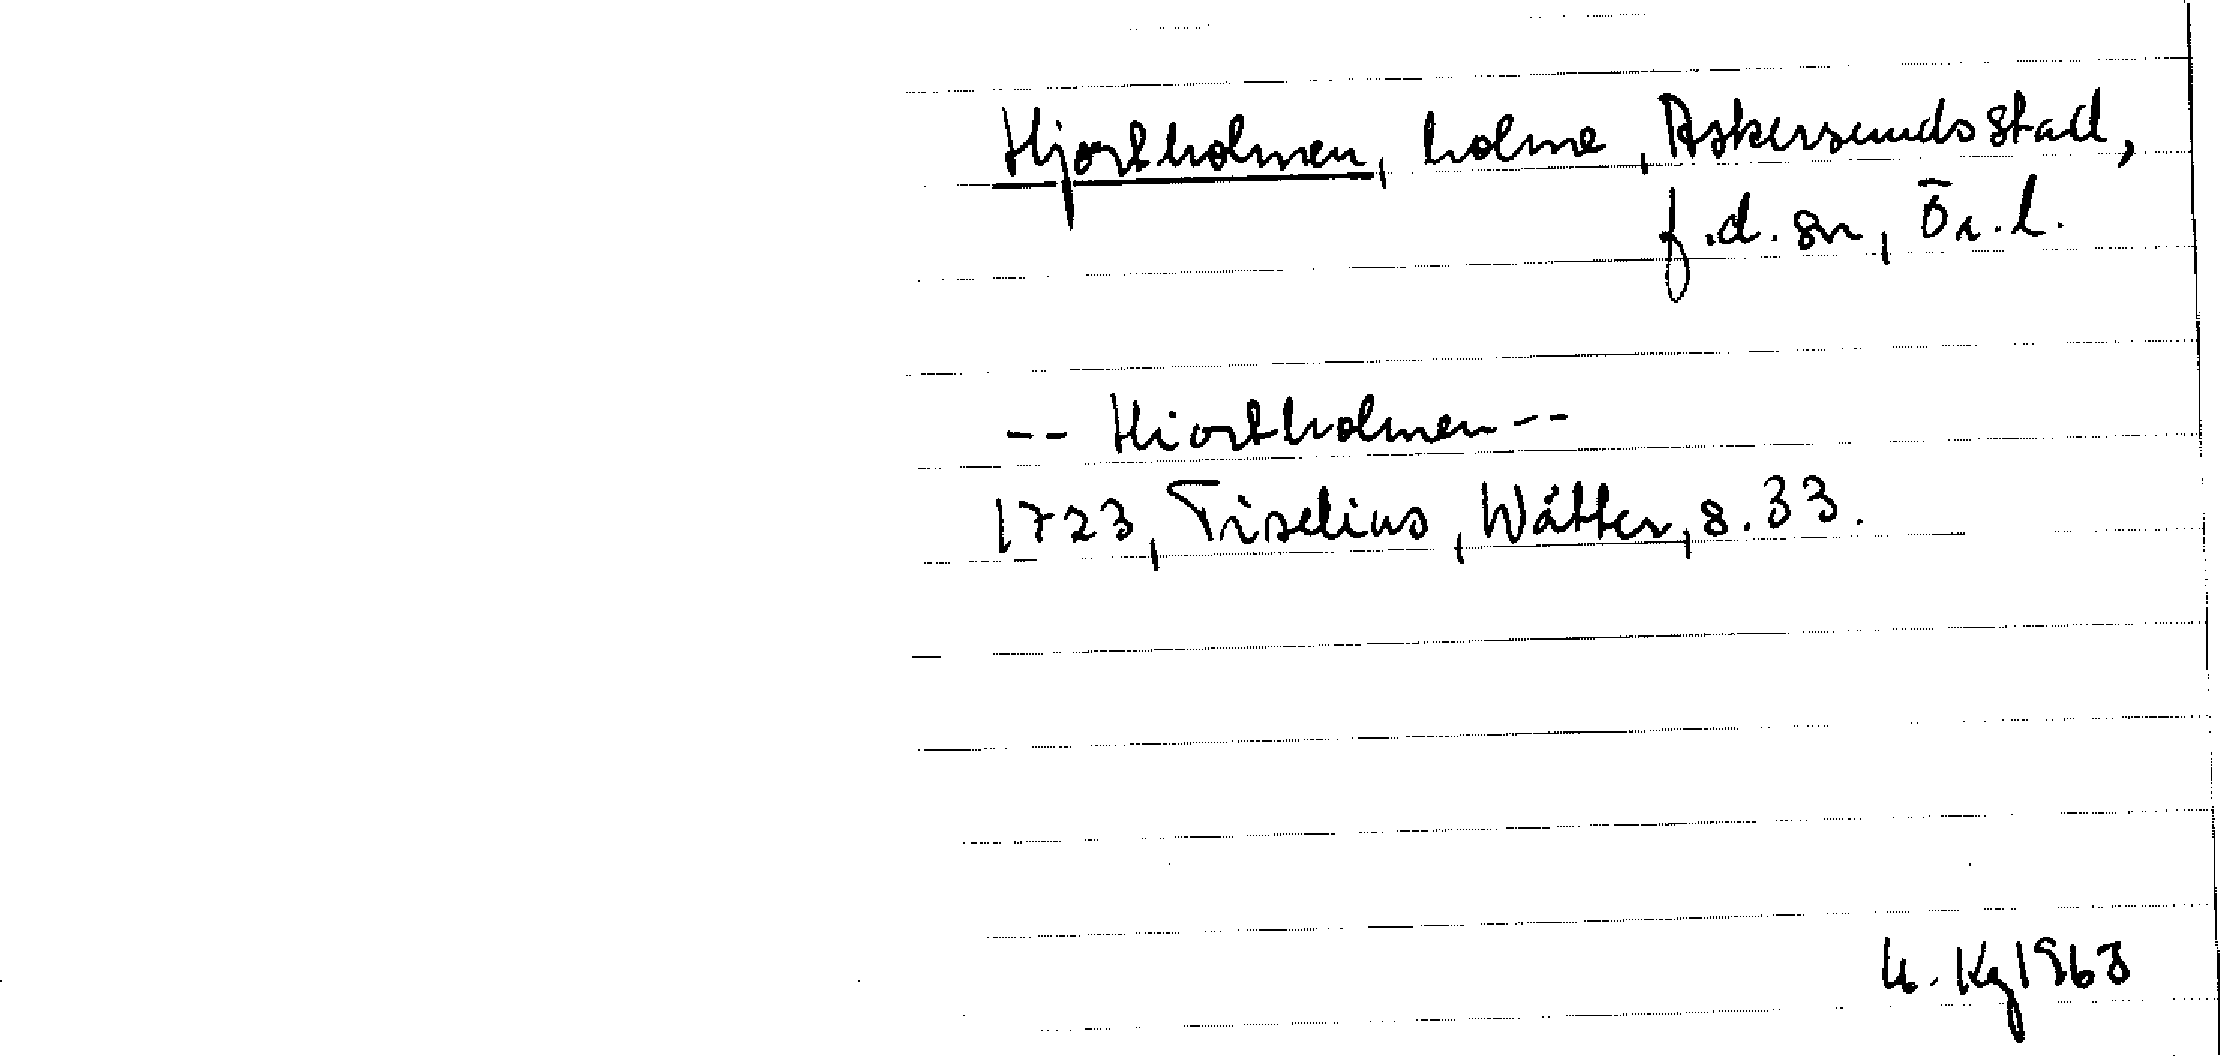 Hjortholmen, holme, Askersunds stad,
f.d. sn, Ör. l.
-- Hiortholmen --
1723, Tiselius, Wätter, s. 33.
Kg 1963